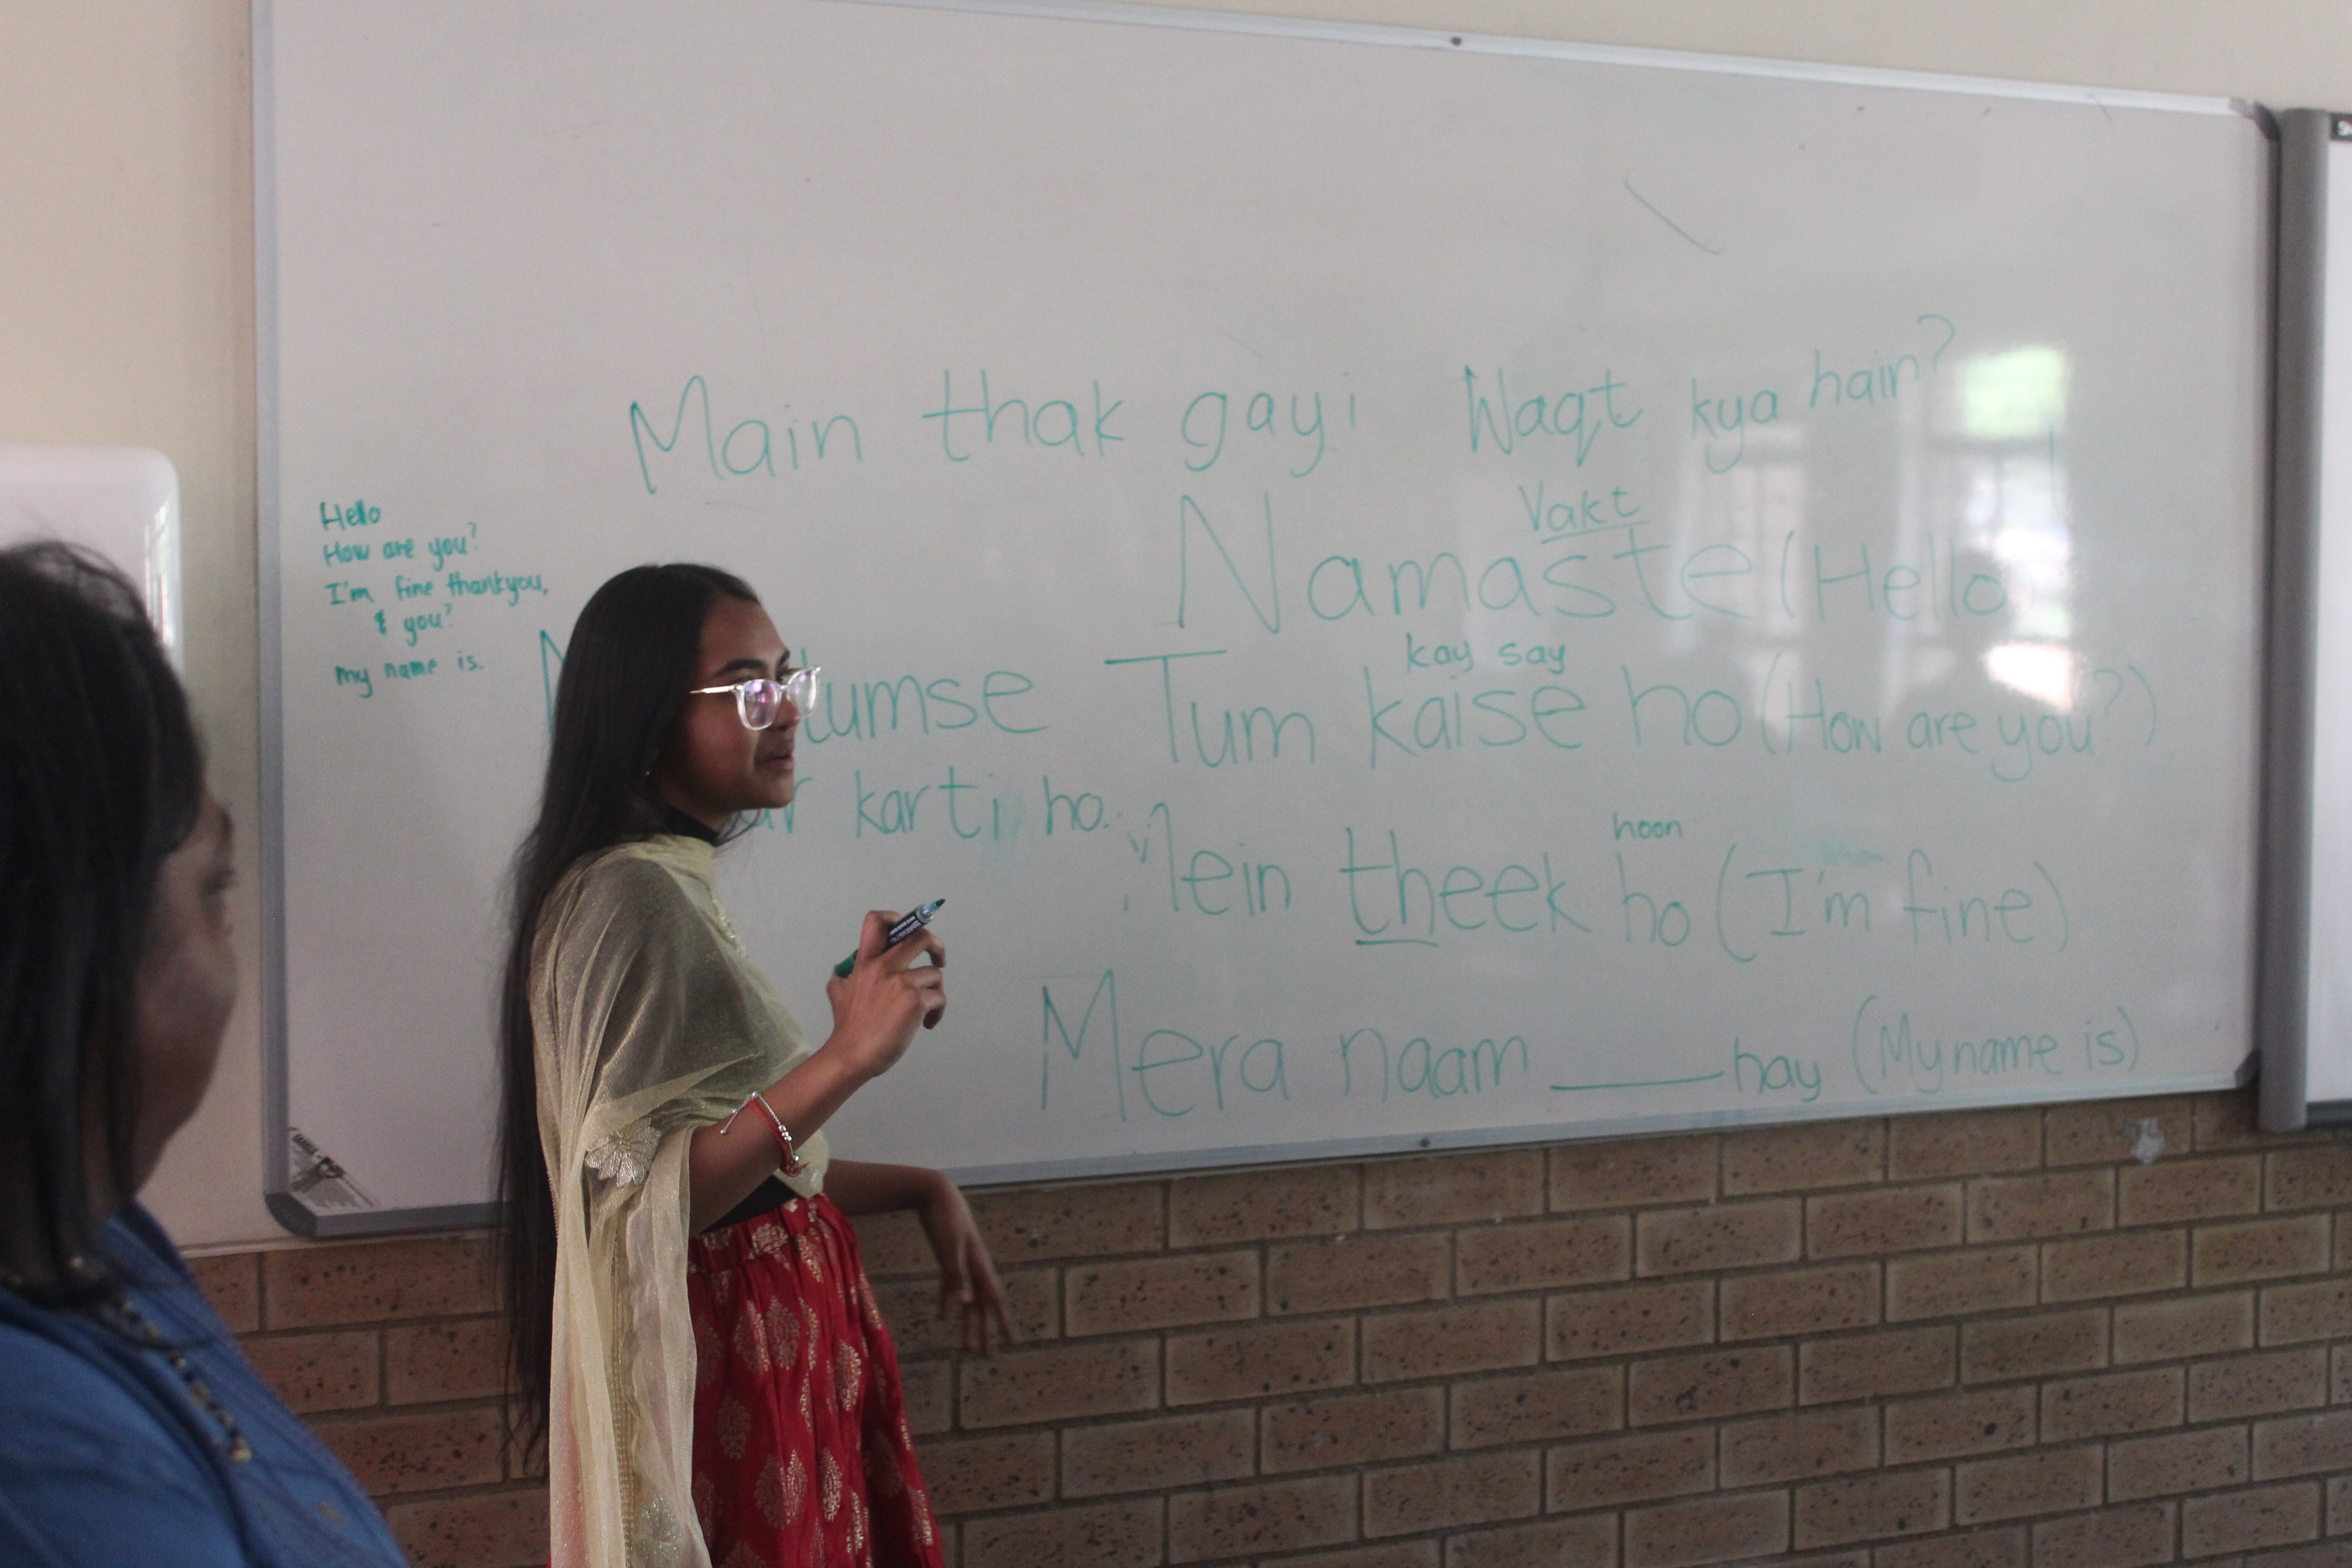 Hello
How are you?
I'm fine thankyou,
& you?
my name is.
Main thak gayi
tumse
karti ho.
Waqt kya hain?
Vakt
Namaste (Hello
kay say
Tum kaise ho (How are you?)
hoon
Mein theek ho (I'm fine)
Mera naam ____ hay (My name is)